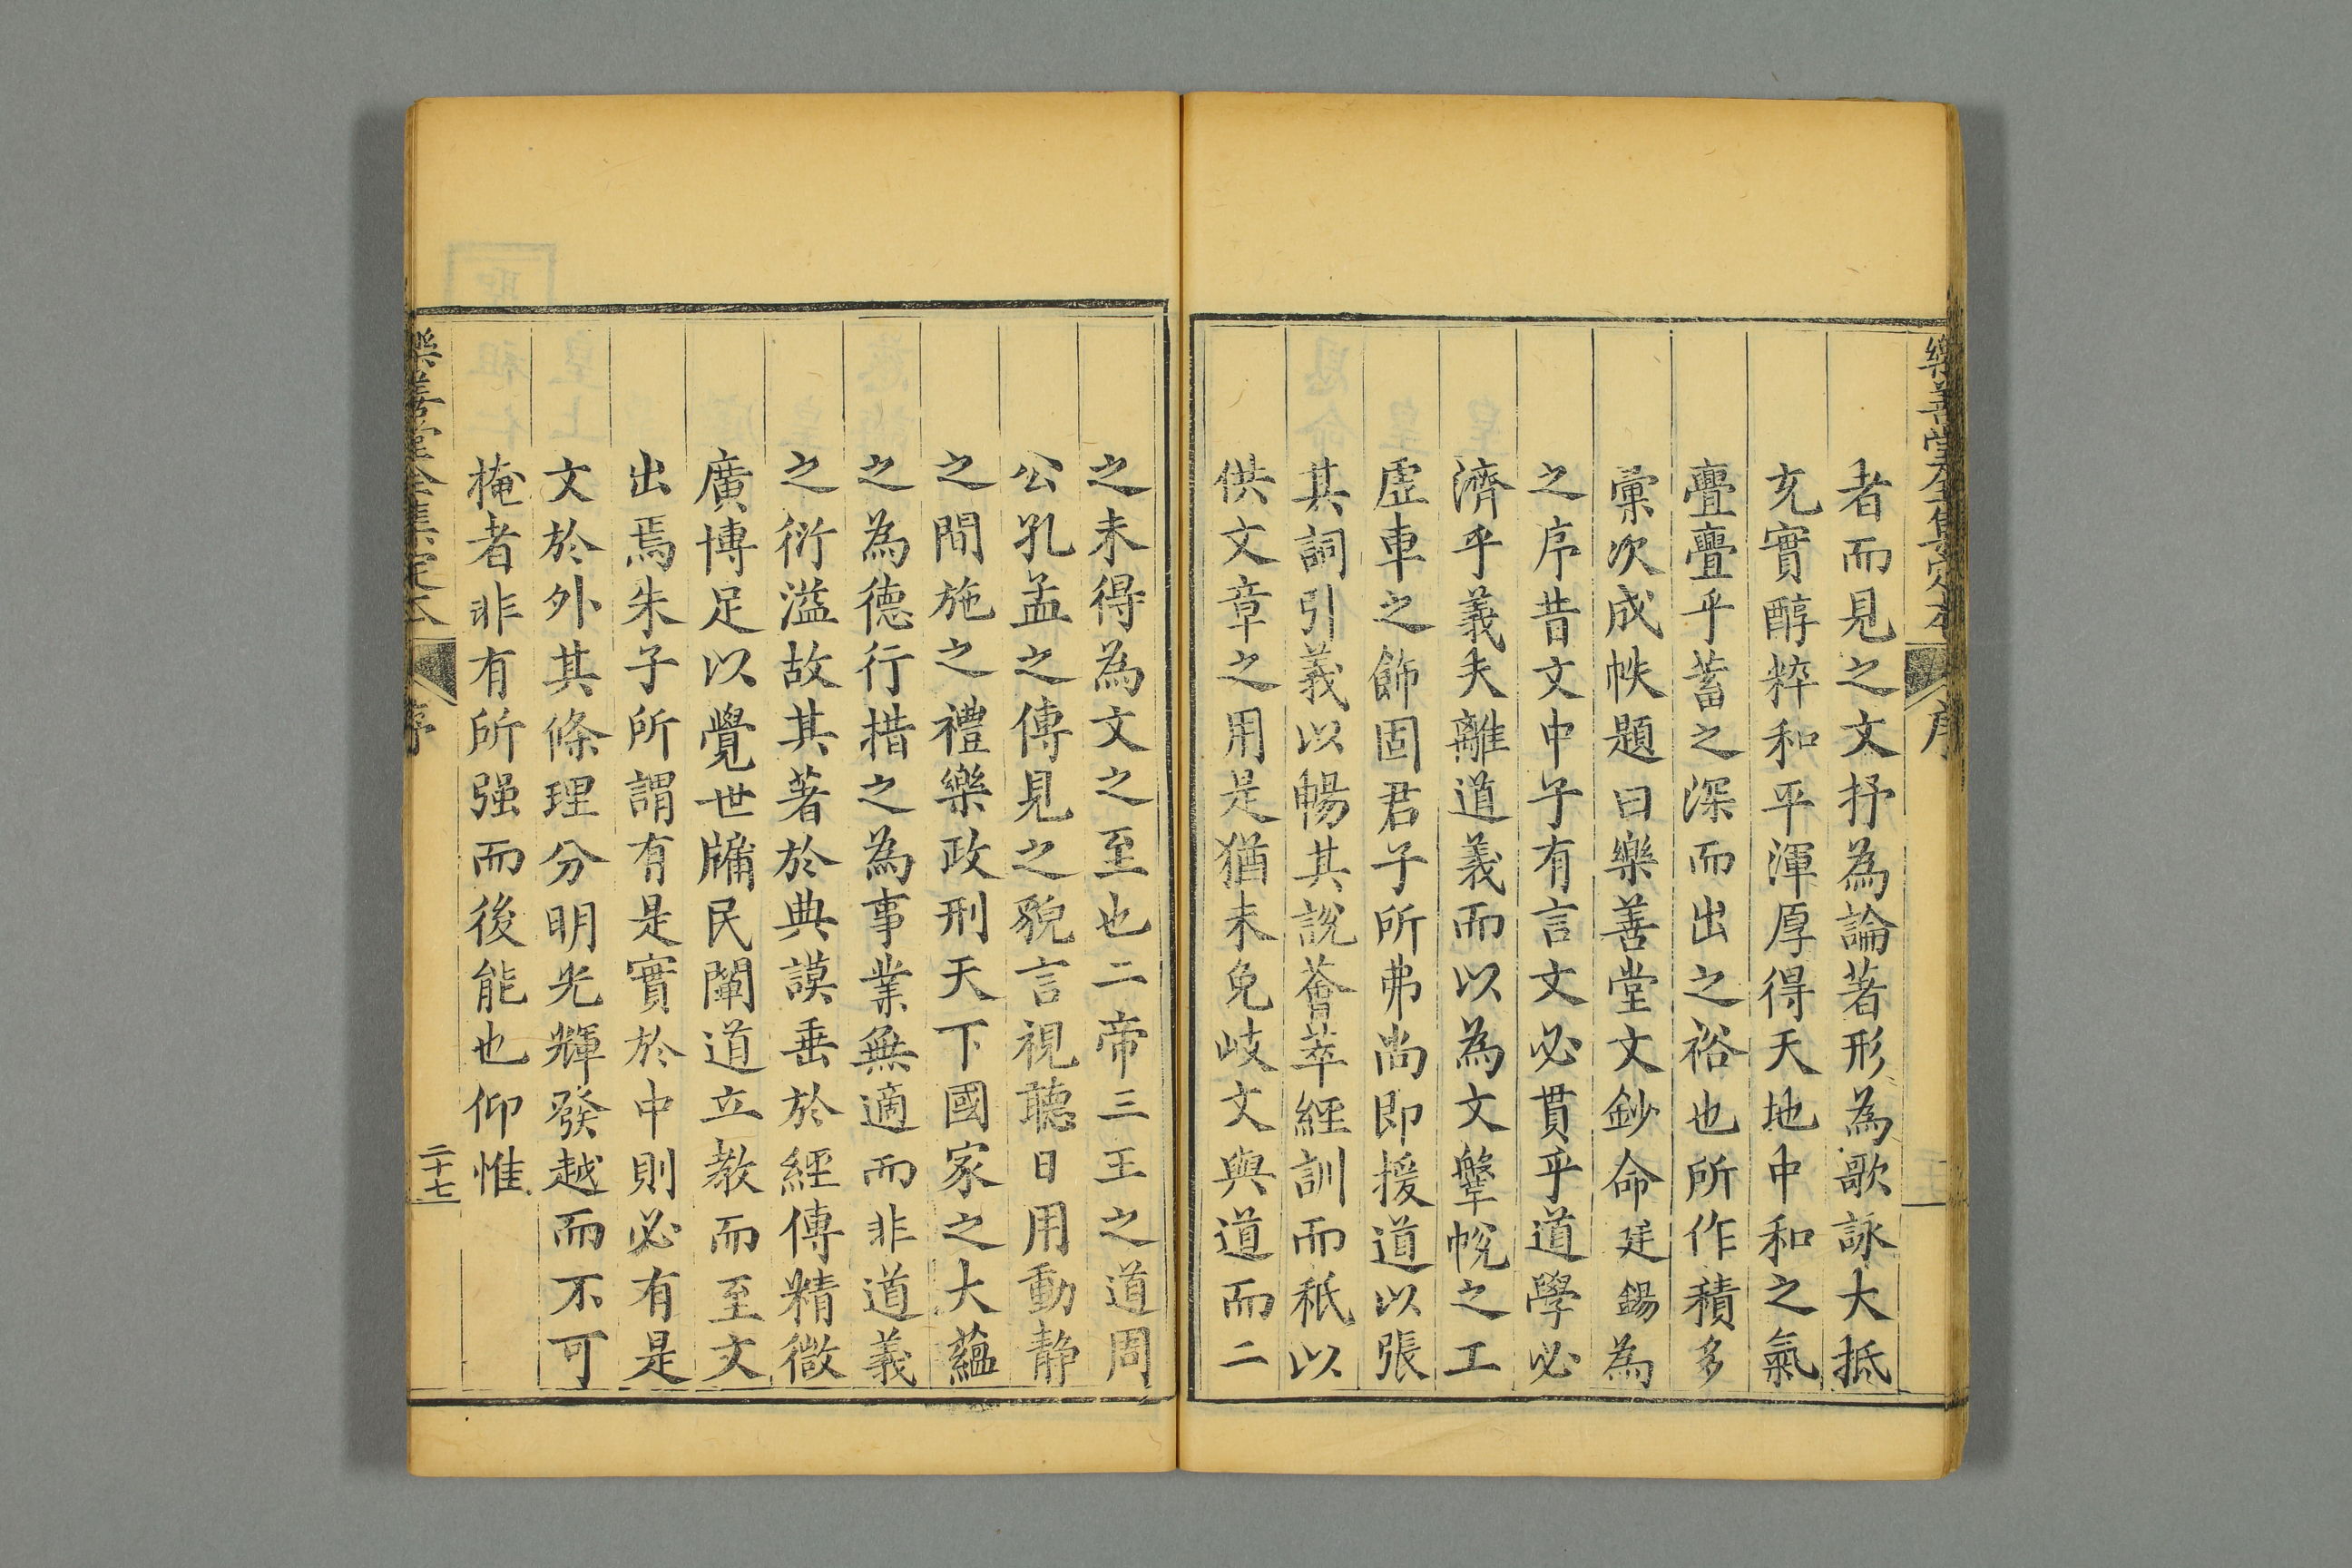 樂善堂全集定本
序
者而見之文抒為論著形為歌詠大抵
充實醇粹和平渾厚得天地中和之氣
亹亹乎蓄之深而出之裕也所作積多
彙次成帙題曰樂善堂文鈔命廷錫為
之序昔文中子有言文必貫乎道學必
濟乎義夫離道義而以為文鞶帨之工
虛車之飾固君子所弗尚即援道以張
其詞引義以暢其說薈萃經訓而秪以
供文章之用是猶未免岐文與道而二
之未得為文之至也二帝三王之道周
公孔孟之傳見之貌言視聽日用動靜
之間施之禮樂政刑天下國家之大蘊
之為德行措之為事業無適而非道義
之衍溢故其著於典謨垂於經傳精微
廣博足以覺世牖民闡道立教而至文
出焉朱子所謂有是實於中則必有是
文於外其條理分明光輝發越而不可
掩者非有所强而後能也仰惟
樂善堂全集定本
序
二十七